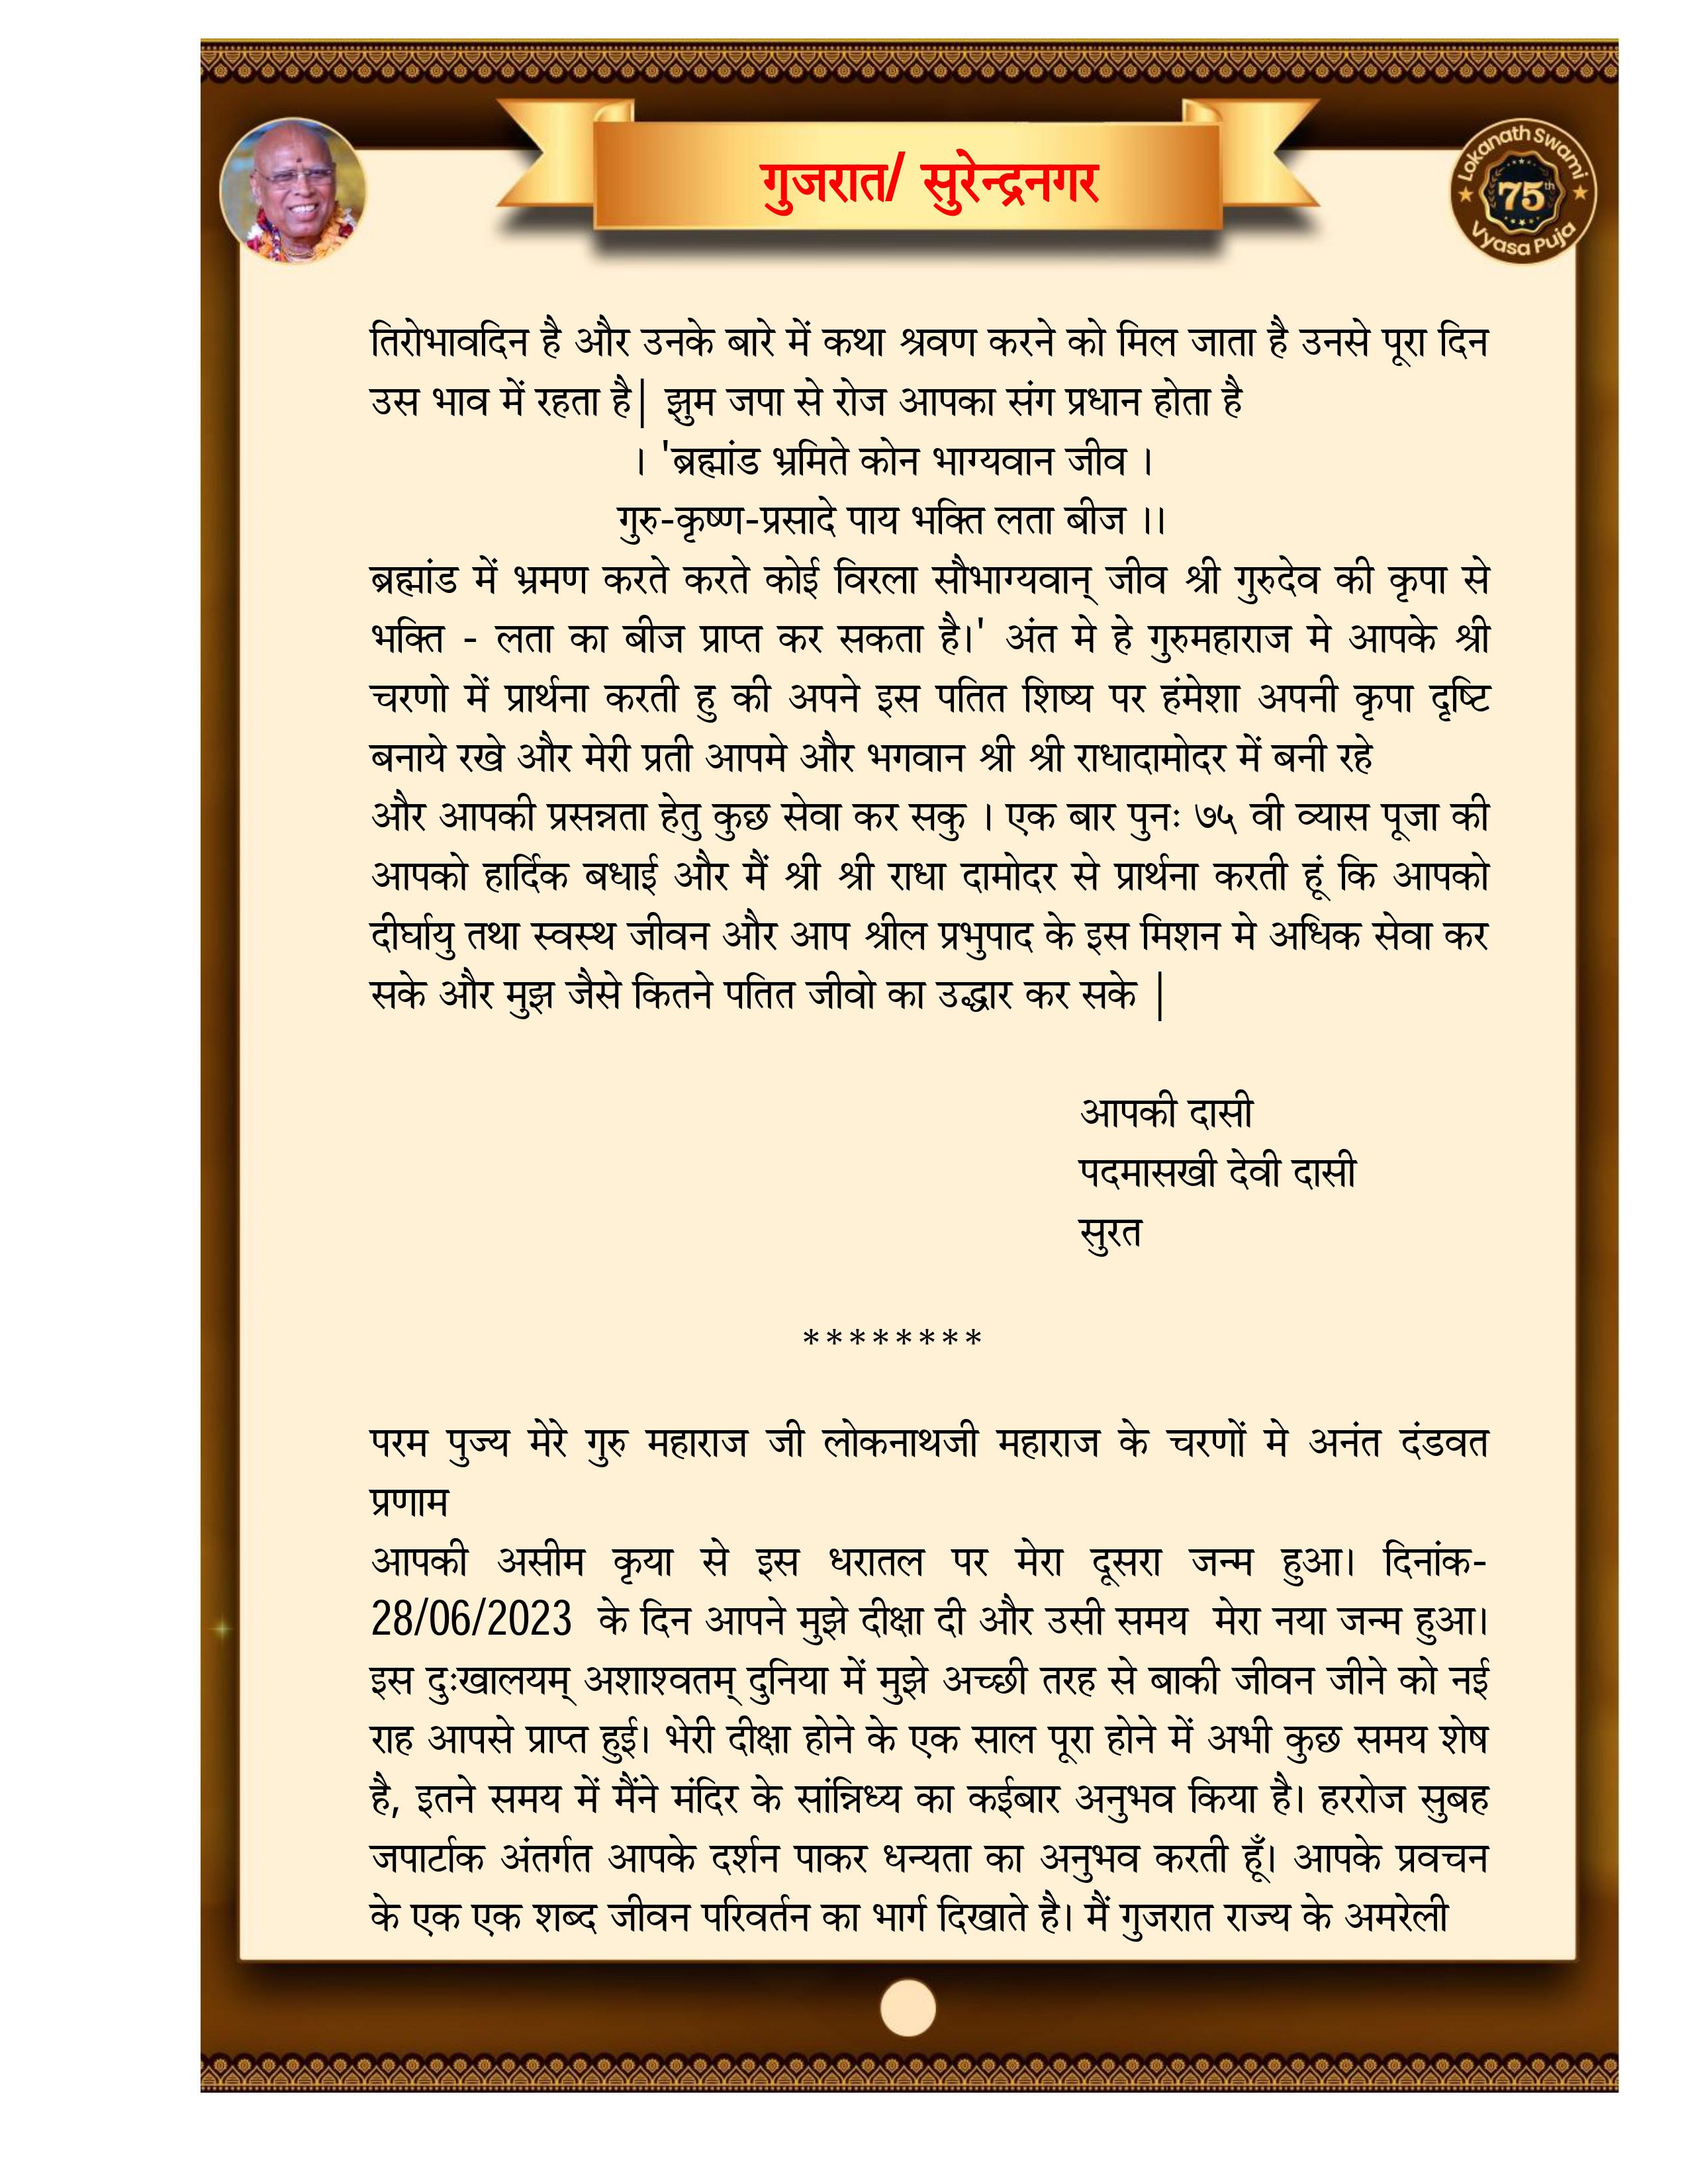 गुजरात/ सुरेन्द्रनगर
Lokanath Swami
75th
Vyasa Puja
तिरोभावदिन है और उनके बारे में कथा श्रवण करने को मिल जाता है उनसे पूरा दिन
उस भाव में रहता है| झुम जपा से रोज आपका संग प्रधान होता है
। 'ब्रह्मांड भ्रमिते कोन भाग्यवान जीव ।
गुरु-कृष्ण-प्रसादे पाय भक्ति लता बीज ।।
ब्रह्मांड में भ्रमण करते करते कोई विरला सौभाग्यवान् जीव श्री गुरुदेव की कृपा से
भक्ति - लता का बीज प्राप्त कर सकता है।' अंत मे हे गुरुमहाराज मे आपके श्री
चरणो में प्रार्थना करती हु की अपने इस पतित शिष्य पर हंमेशा अपनी कृपा दृष्टि
बनाये रखे और मेरी प्रती आपमे और भगवान श्री श्री राधादामोदर में बनी रहे
और आपकी प्रसन्नता हेतु कुछ सेवा कर सकु । एक बार पुनः ७५ वी व्यास पूजा की
आपको हार्दिक बधाई और मैं श्री श्री राधा दामोदर से प्रार्थना करती हूं कि आपको
दीर्घायु तथा स्वस्थ जीवन और आप श्रील प्रभुपाद के इस मिशन मे अधिक सेवा कर
सके और मुझ जैसे कितने पतित जीवो का उद्धार कर सके |
आपकी दासी
पदमासखी देवी दासी
सुरत
********
परम पुज्य मेरे गुरु महाराज जी लोकनाथजी महाराज के चरणों मे अनंत दंडवत
प्रणाम
आपकी असीम कृया से इस धरातल पर मेरा दूसरा जन्म हुआ। दिनांक-
28/06/2023 के दिन आपने मुझे दीक्षा दी और उसी समय मेरा नया जन्म हुआ।
इस दुःखालयम् अशाश्वतम् दुनिया में मुझे अच्छी तरह से बाकी जीवन जीने को नई
राह आपसे प्राप्त हुई। भेरी दीक्षा होने के एक साल पूरा होने में अभी कुछ समय शेष
है, इतने समय में मैंने मंदिर के सांन्निध्य का कईबार अनुभव किया है। हररोज सुबह
जपार्टाक अंतर्गत आपके दर्शन पाकर धन्यता का अनुभव करती हूँ। आपके प्रवचन
के एक एक शब्द जीवन परिवर्तन का भार्ग दिखाते है। मैं गुजरात राज्य के अमरेली